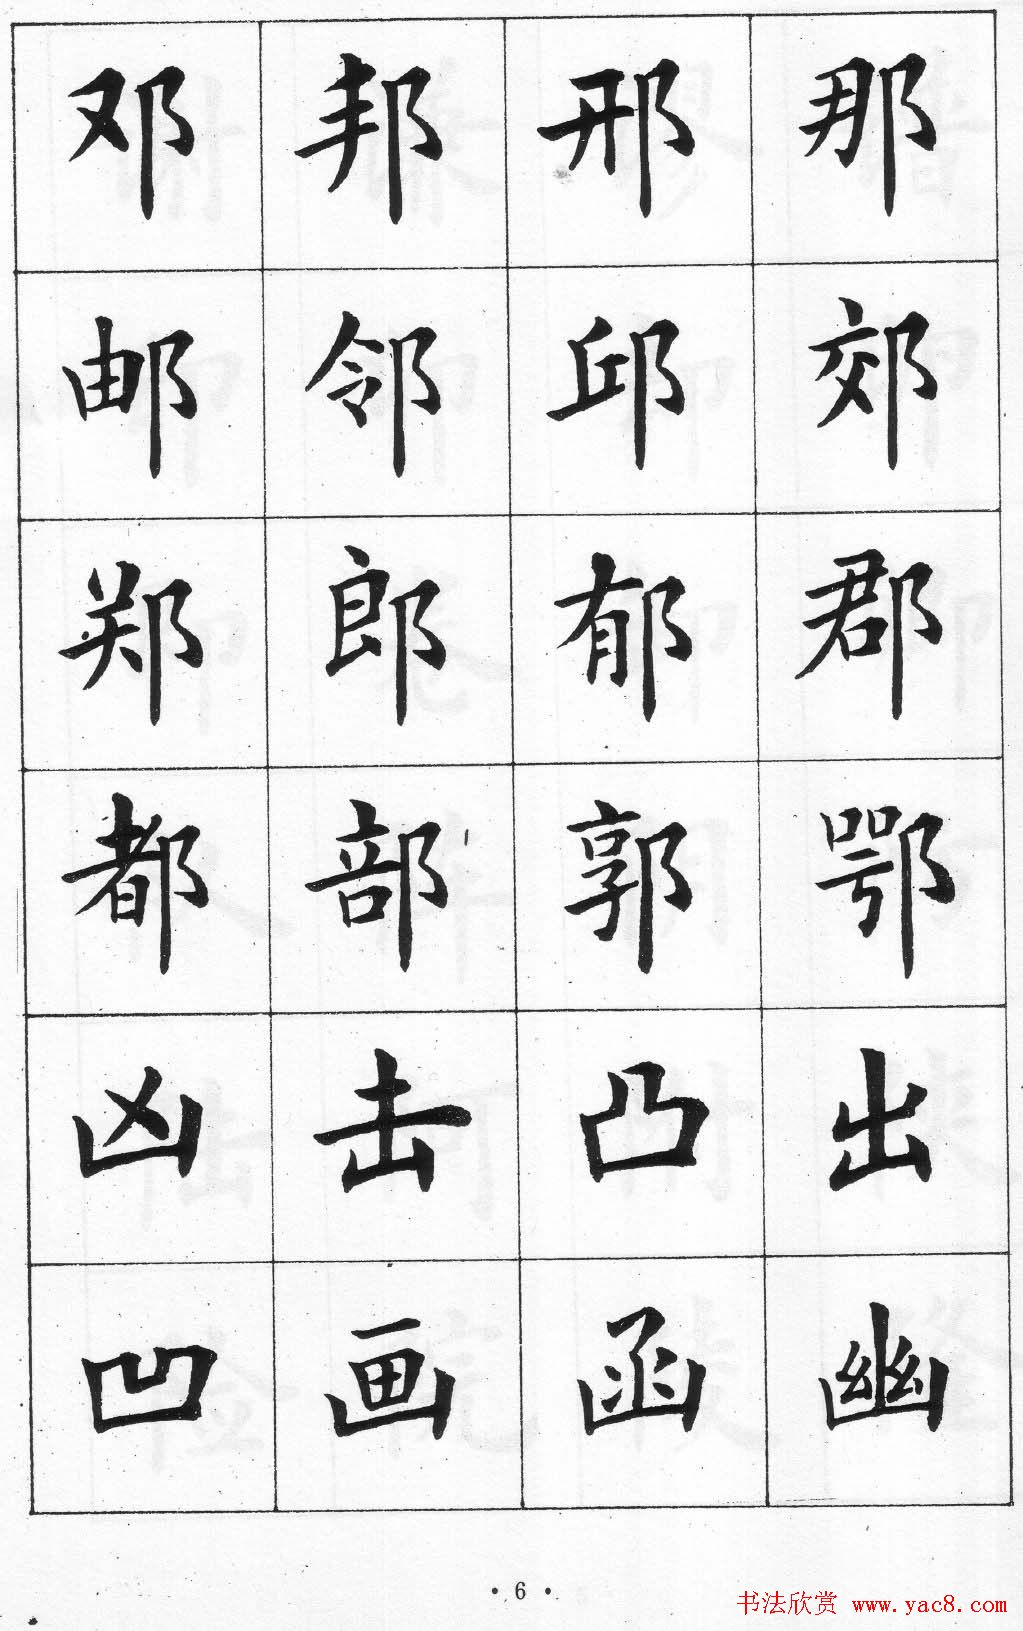 邓邦邢那
邮邻邱郊
郑郎郁郡
都部郭鄂
凶击凸出
凹画函幽
·6·
书法欣赏 www.yac8.com